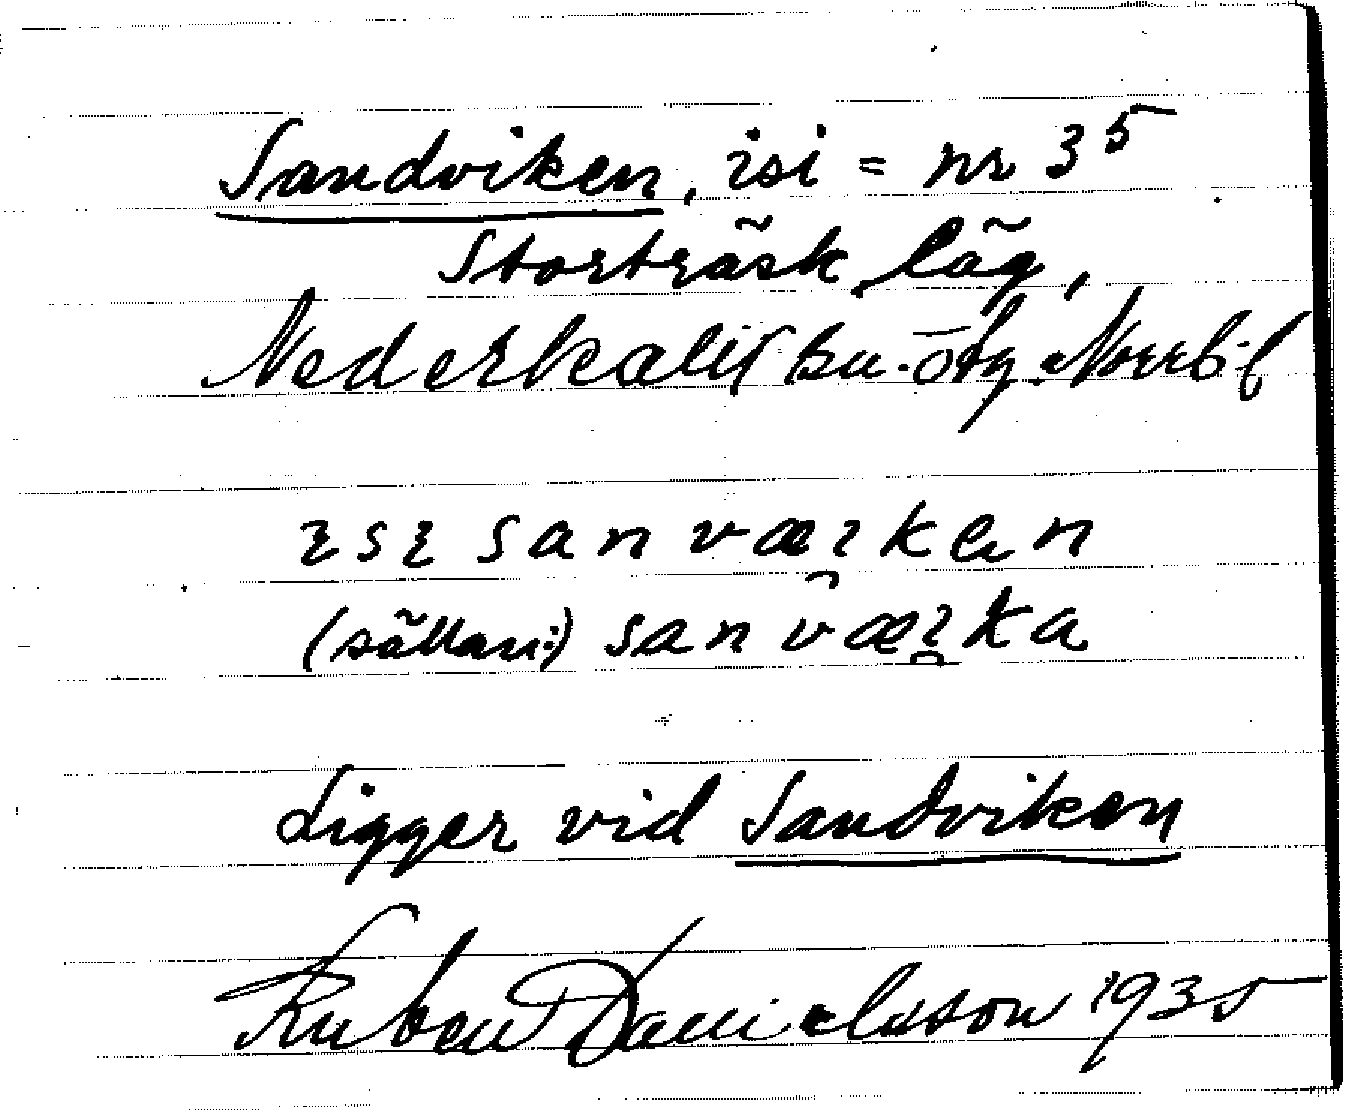 Sandviken, isi = nr 35
Storträsk läg,
Nederkalix sn. öhg. Norrb. l
ısı sanvæıken
(sällan:) sanvæıka
Ligger vid Sandviken
Ruben Danielsson 1935